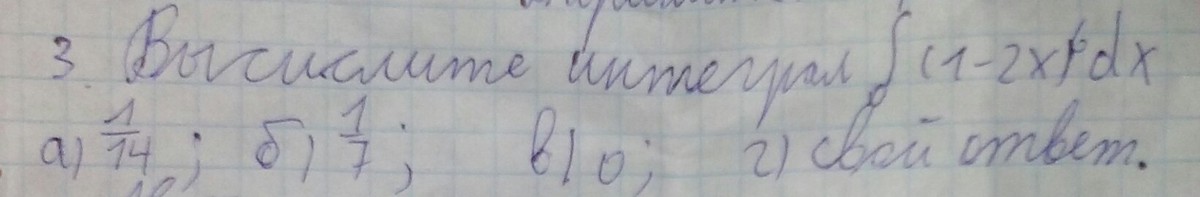 3. Вычислите интеграл ∫₀ (1-2x)⁶dx
а) 1/14; б) 1/7; в) 0; г) свой ответ.